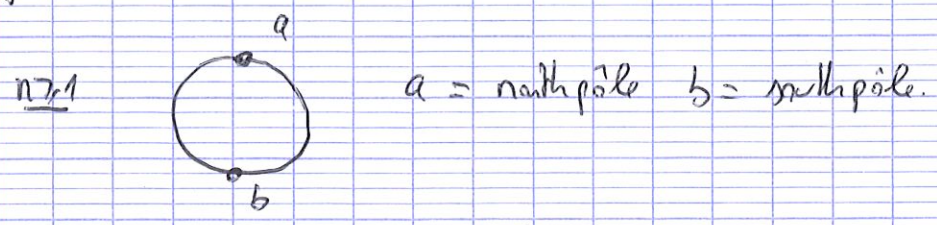 a
n⩾1 a = north pôle b = south pôle.
b